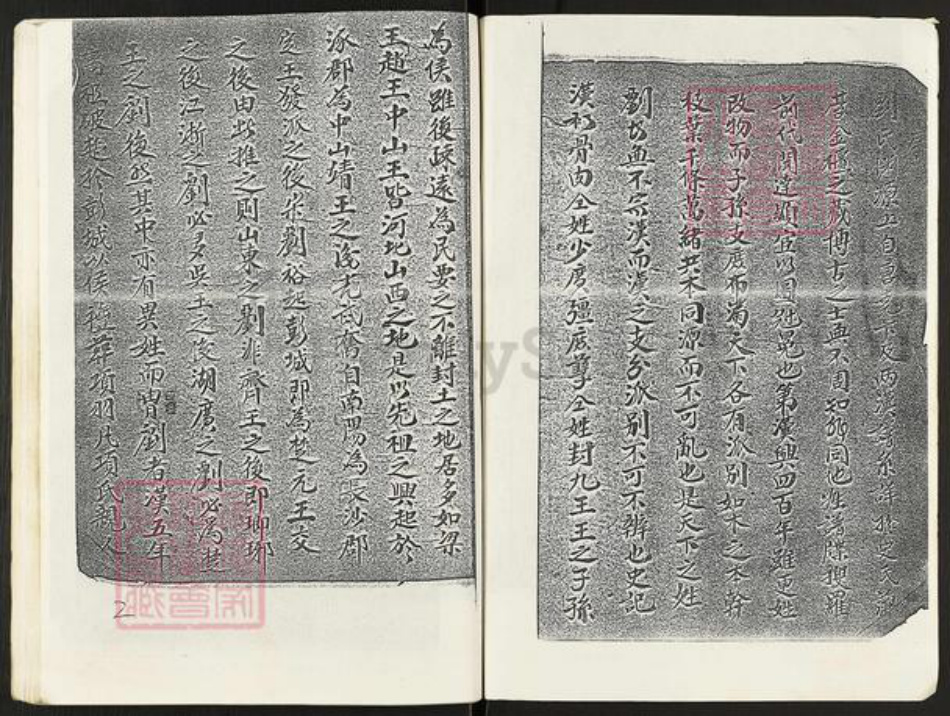 劉氏 源 自 下及兩漢 系詳於史氏
金匱之藏博古之士無不周知 同 譜牒興羅
前代閥達顯宦以圖冠冕也第漢興四百年雖更姓
改物而子孫支庶布滿天下各有派別如木之本幹
枝葉千條萬緒共本同源而不可亂也是天下之姓
劉者無不宗漢而漢之支分派別不可不辨也史記
漢初骨肉仝姓少廣彊庶孽仝姓封九王王之子孫
為侯雖後疎遠為民要之不離封土之地居多如梁
王趙王中山王皆河北山西之地是以先祖之興起於
涿郡為中山靖王之後光武奮自南陽為長沙郡
定王發派之後宋劉裕起彭城即為楚元王交
之後由此推之則山東之劉非齊王之後即瑯琊
之後江浙之劉必多吳王之後湖廣之劉必為楚
王之劉後然其中亦有異姓而冒劉者漢五年
破楚於彭城以侯禮葬項羽凡項氏親人
2